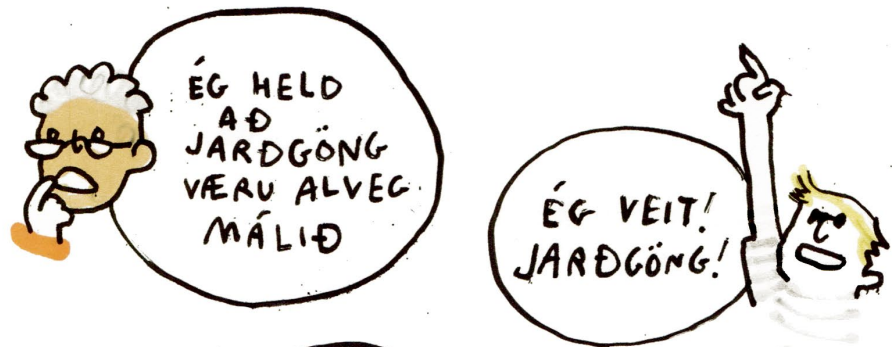 ÉG HELD
AÐ
JARÐGÖNG
VÆRU ALVEG
MÁLIÐ
ÉG VEIT!
JARÐGÖNG!